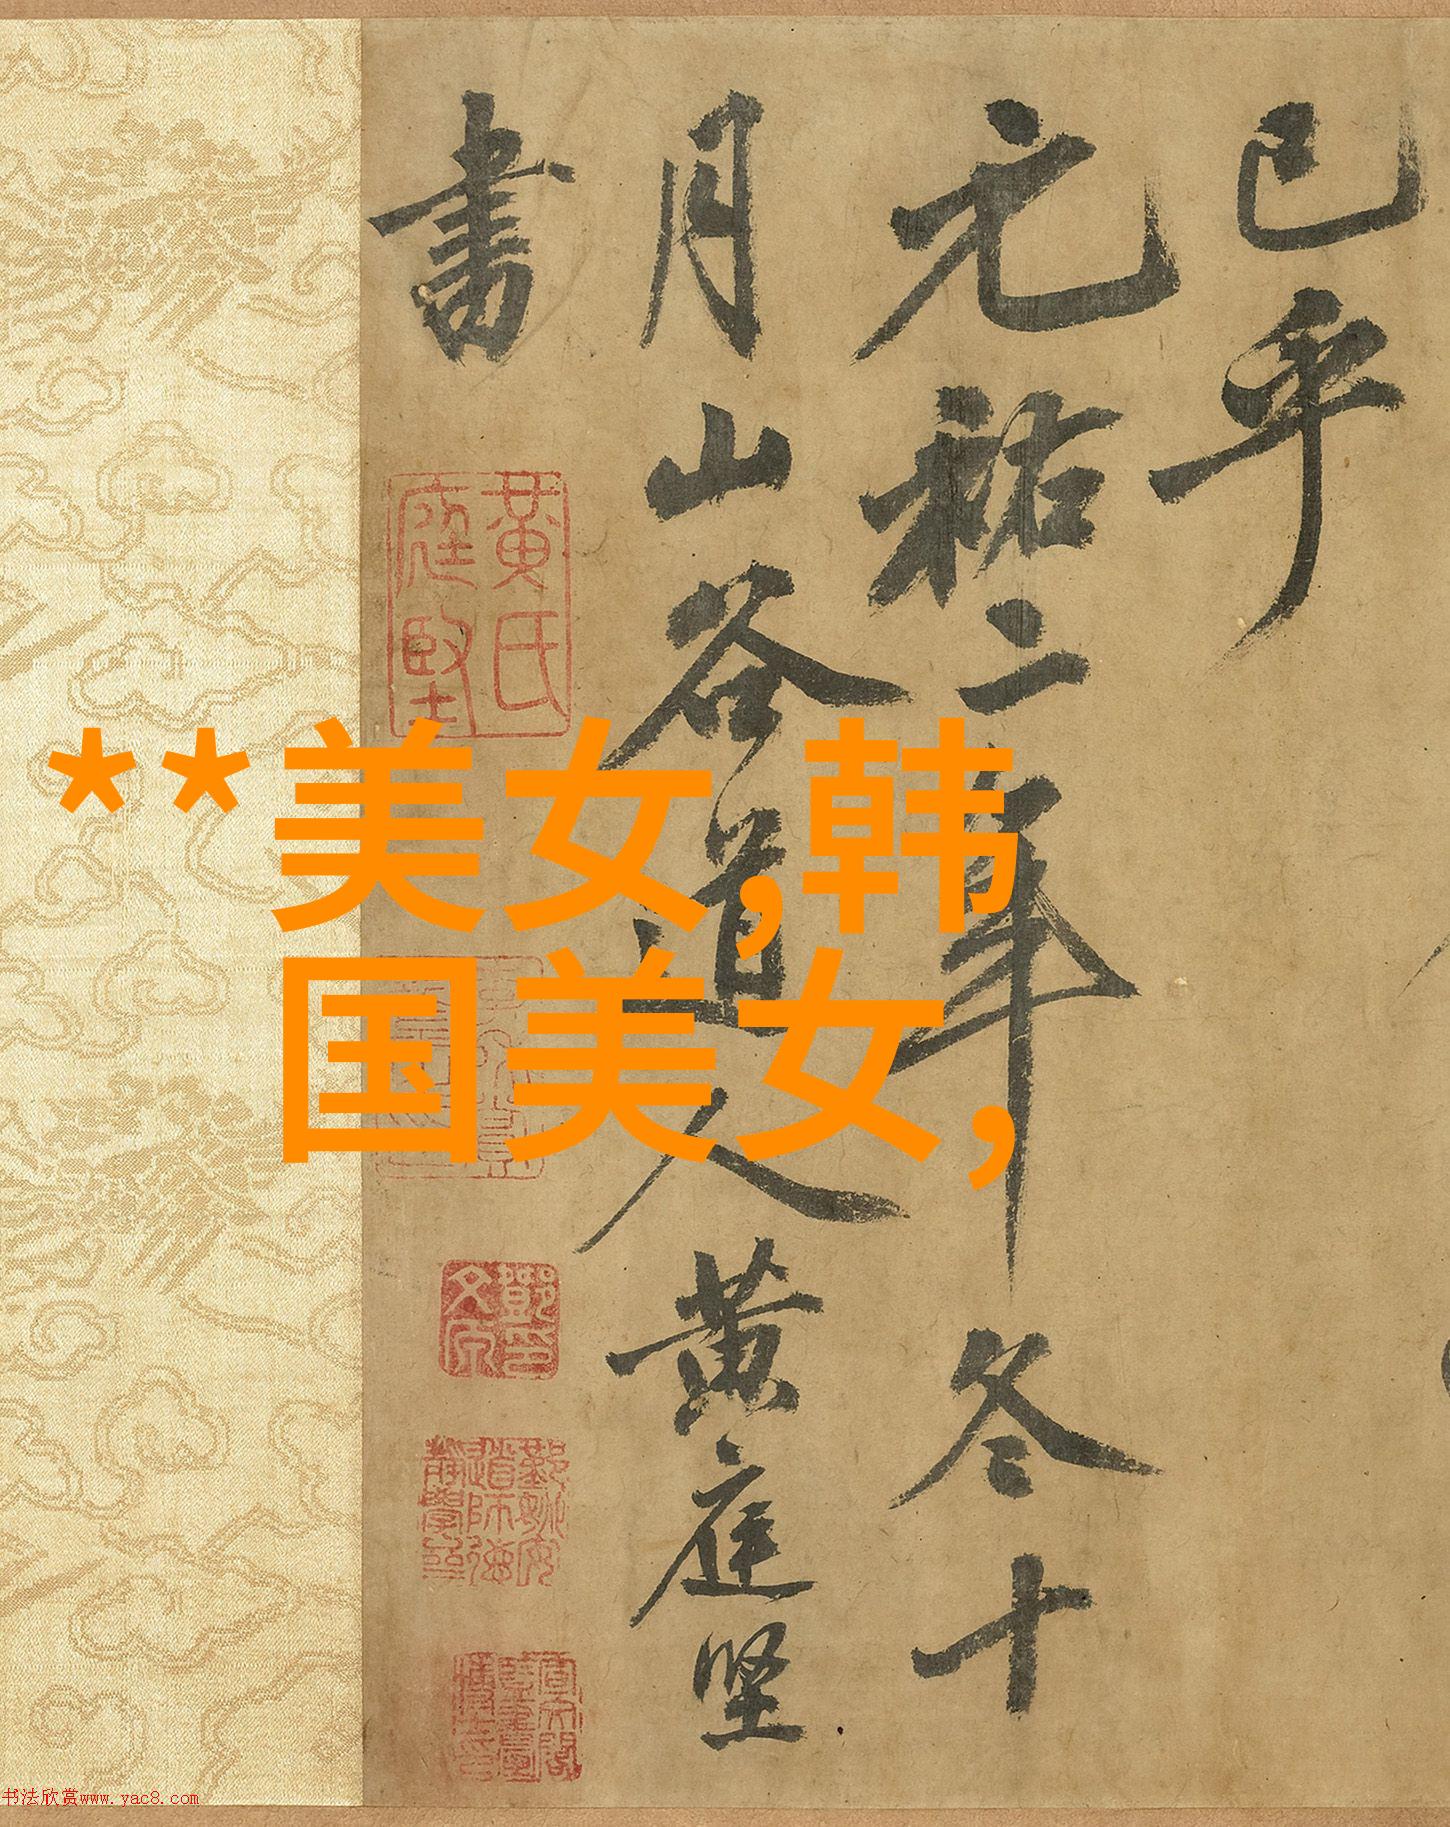 已乎
元祐二年冬十
月山谷道人黄庭坚
書
黄氏
庭堅
**美女,韩
国美女,
书法欣赏www.yac8.com